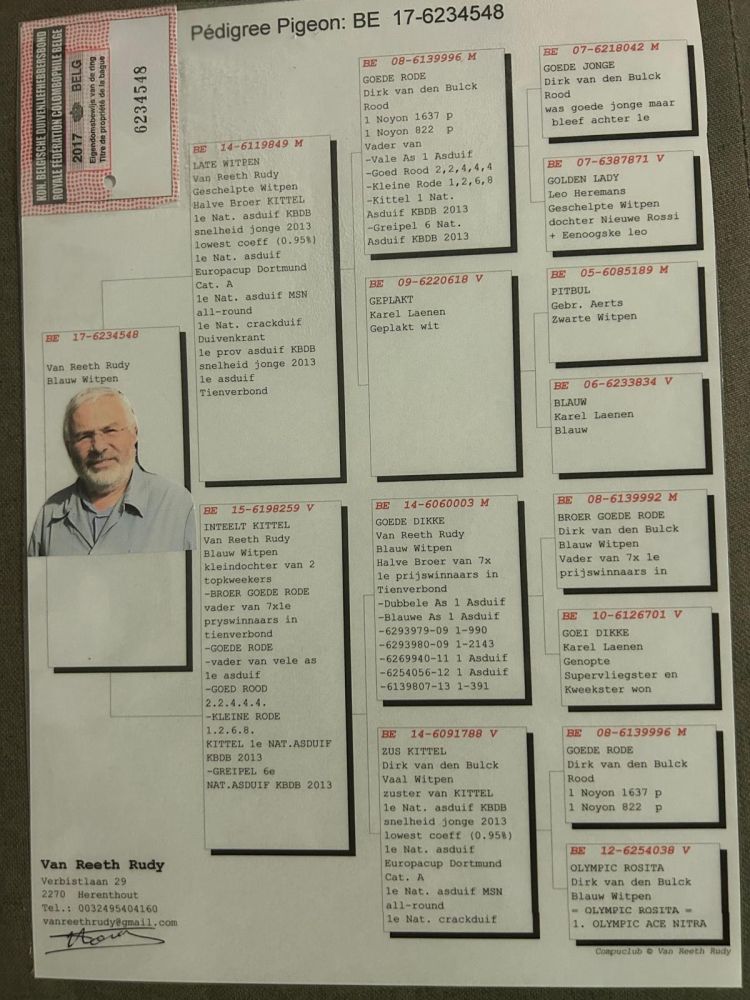 Pédigree Pigeon: BE 17-6234548
KON. BELGISCHE DUIVENLIEFHEBBERSBOND
ROYALE FÉDÉRATION COLOMBOPHILE BELGE
2017 BELG
Eigendomsbewijs van de ring
Titre de propriété de la bague
6234548
BE 17-6234548
Van Reeth Rudy
Blauw Witpen
BE 14-6119849 M
LATE WITPEN
Van Reeth Rudy
Geschelpte Witpen
Halve Broer KITTEL
1e Nat. asduif KBDB
snelheid jonge 2013
lowest coeff (0.95%)
1e Nat. asduif
Europacup Dortmund
Cat. A
1e Nat. asduif MSN
all-round
1e Nat. crackduif
Duivenkrant
1e prov asduif KBDB
snelheid jonge 2013
1e asduif
Tienverbond
BE 15-6198259 V
INTEELT KITTEL
Van Reeth Rudy
Blauw Witpen
kleindochter van 2
topkweekers
-BROER GOEDE RODE
vader van 7x1e
pryswinnaars in
tienverbond
-GOEDE RODE
-vader van vele as
1e asduif
-GOED ROOD
2.2.4.4.4.
-KLEINE RODE
1.2.6.8.
KITTEL 1e NAT.ASDUIF
KBDB 2013
-GREIPEL 6e
NAT.ASDUIF KBDB 2013
BE 08-6139996 M
GOEDE RODE
Dirk van den Bulck
Rood
1 Noyon 1637 p
1 Noyon 822 p
Vader van
-Vale As 1 Asduif
-Goed Rood 2,2,4,4,4
-Kleine Rode 1,2,6,8
-Kittel 1 Nat.
Asduif KBDB 2013
-Greipel 6 Nat.
Asduif KBDB 2013
BE 09-6220618 V
GEPLAKT
Karel Laenen
Geplakt wit
BE 14-6060003 M
GOEDE DIKKE
Van Reeth Rudy
Blauw Witpen
Halve Broer van 7x
1e prijswinnaars in
Tienverbond
-Dubbele As 1 Asduif
-Blauwe As 1 Asduif
-6293979-09 1-990
-6293980-09 1-2143
-6269940-11 1 Asduif
-6254056-12 1 Asduif
-6139807-13 1-391
BE 14-6091788 V
ZUS KITTEL
Dirk van den Bulck
Vaal Witpen
zuster van KITTEL
1e Nat. asduif KBDB
snelheid jonge 2013
lowest coeff (0.95%)
1e Nat. asduif
Europacup Dortmund
Cat. A
1e Nat. asduif MSN
all-round
1e Nat. crackduif
BE 07-6218042 M
GOEDE JONGE
Dirk van den Bulck
Rood
was goede jonge maar
bleef achter 1e
BE 07-6387871 V
GOLDEN LADY
Leo Heremans
Geschelpte Witpen
dochter Nieuwe Rossi
+ Eenoogske leo
BE 05-6085189 M
PITBUL
Gebr. Aerts
Zwarte Witpen
BE 06-6233834 V
BLAUW
Karel Laenen
Blauw
BE 08-6139992 M
BROER GOEDE RODE
Dirk van den Bulck
Blauw Witpen
Vader van 7x 1e
prijswinnaars in
BE 10-6126701 V
GOEI DIKKE
Karel Laenen
Genopte
Supervliegster en
Kweekster won
BE 08-6139996 M
GOEDE RODE
Dirk van den Bulck
Rood
1 Noyon 1637 p
1 Noyon 822 p
BE 12-6254038 V
OLYMPIC ROSITA
Dirk van den Bulck
Blauw Witpen
= OLYMPIC ROSITA =
1. OLYMPIC ACE NITRA
Van Reeth Rudy
Verbistlaan 29
2270 Herenthout
Tel.: 0032495404160
vanreethrudy@gmail.com
Compuclub © Van Reeth Rudy